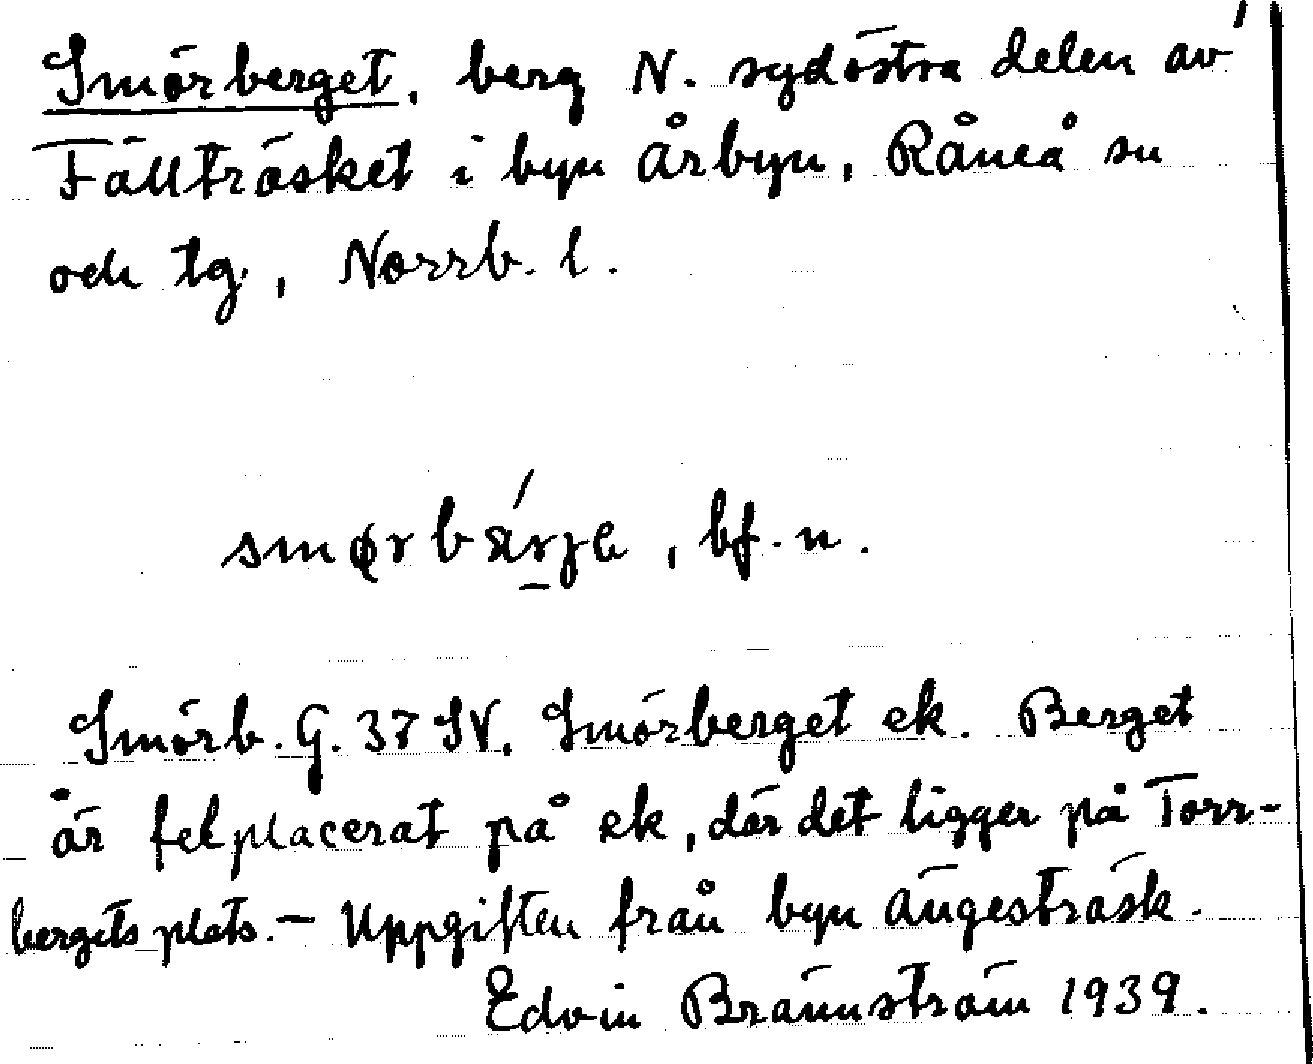 Smörberget, berg N. sydöstra delen av
Fällträsket i byn Årbyn, Råneå sn
och tg, Norrb. l.
smørbǽrje, bf. n.
Smörb. G. 37 SV. Smörberget ek. Berget
är felplacerat på ek, där det ligger på Torr-
bergets plats. – Uppgiften från byn Ängesträsk.
Edvin Brännström 1939.